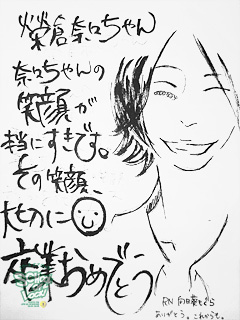 榮倉奈々ちゃん
奈々ちゃんの
笑顔が
本当にすきです。
その笑顔、
大切に
卒業おめでとう
RN 向日葵さくら
ありがとう。これからも。